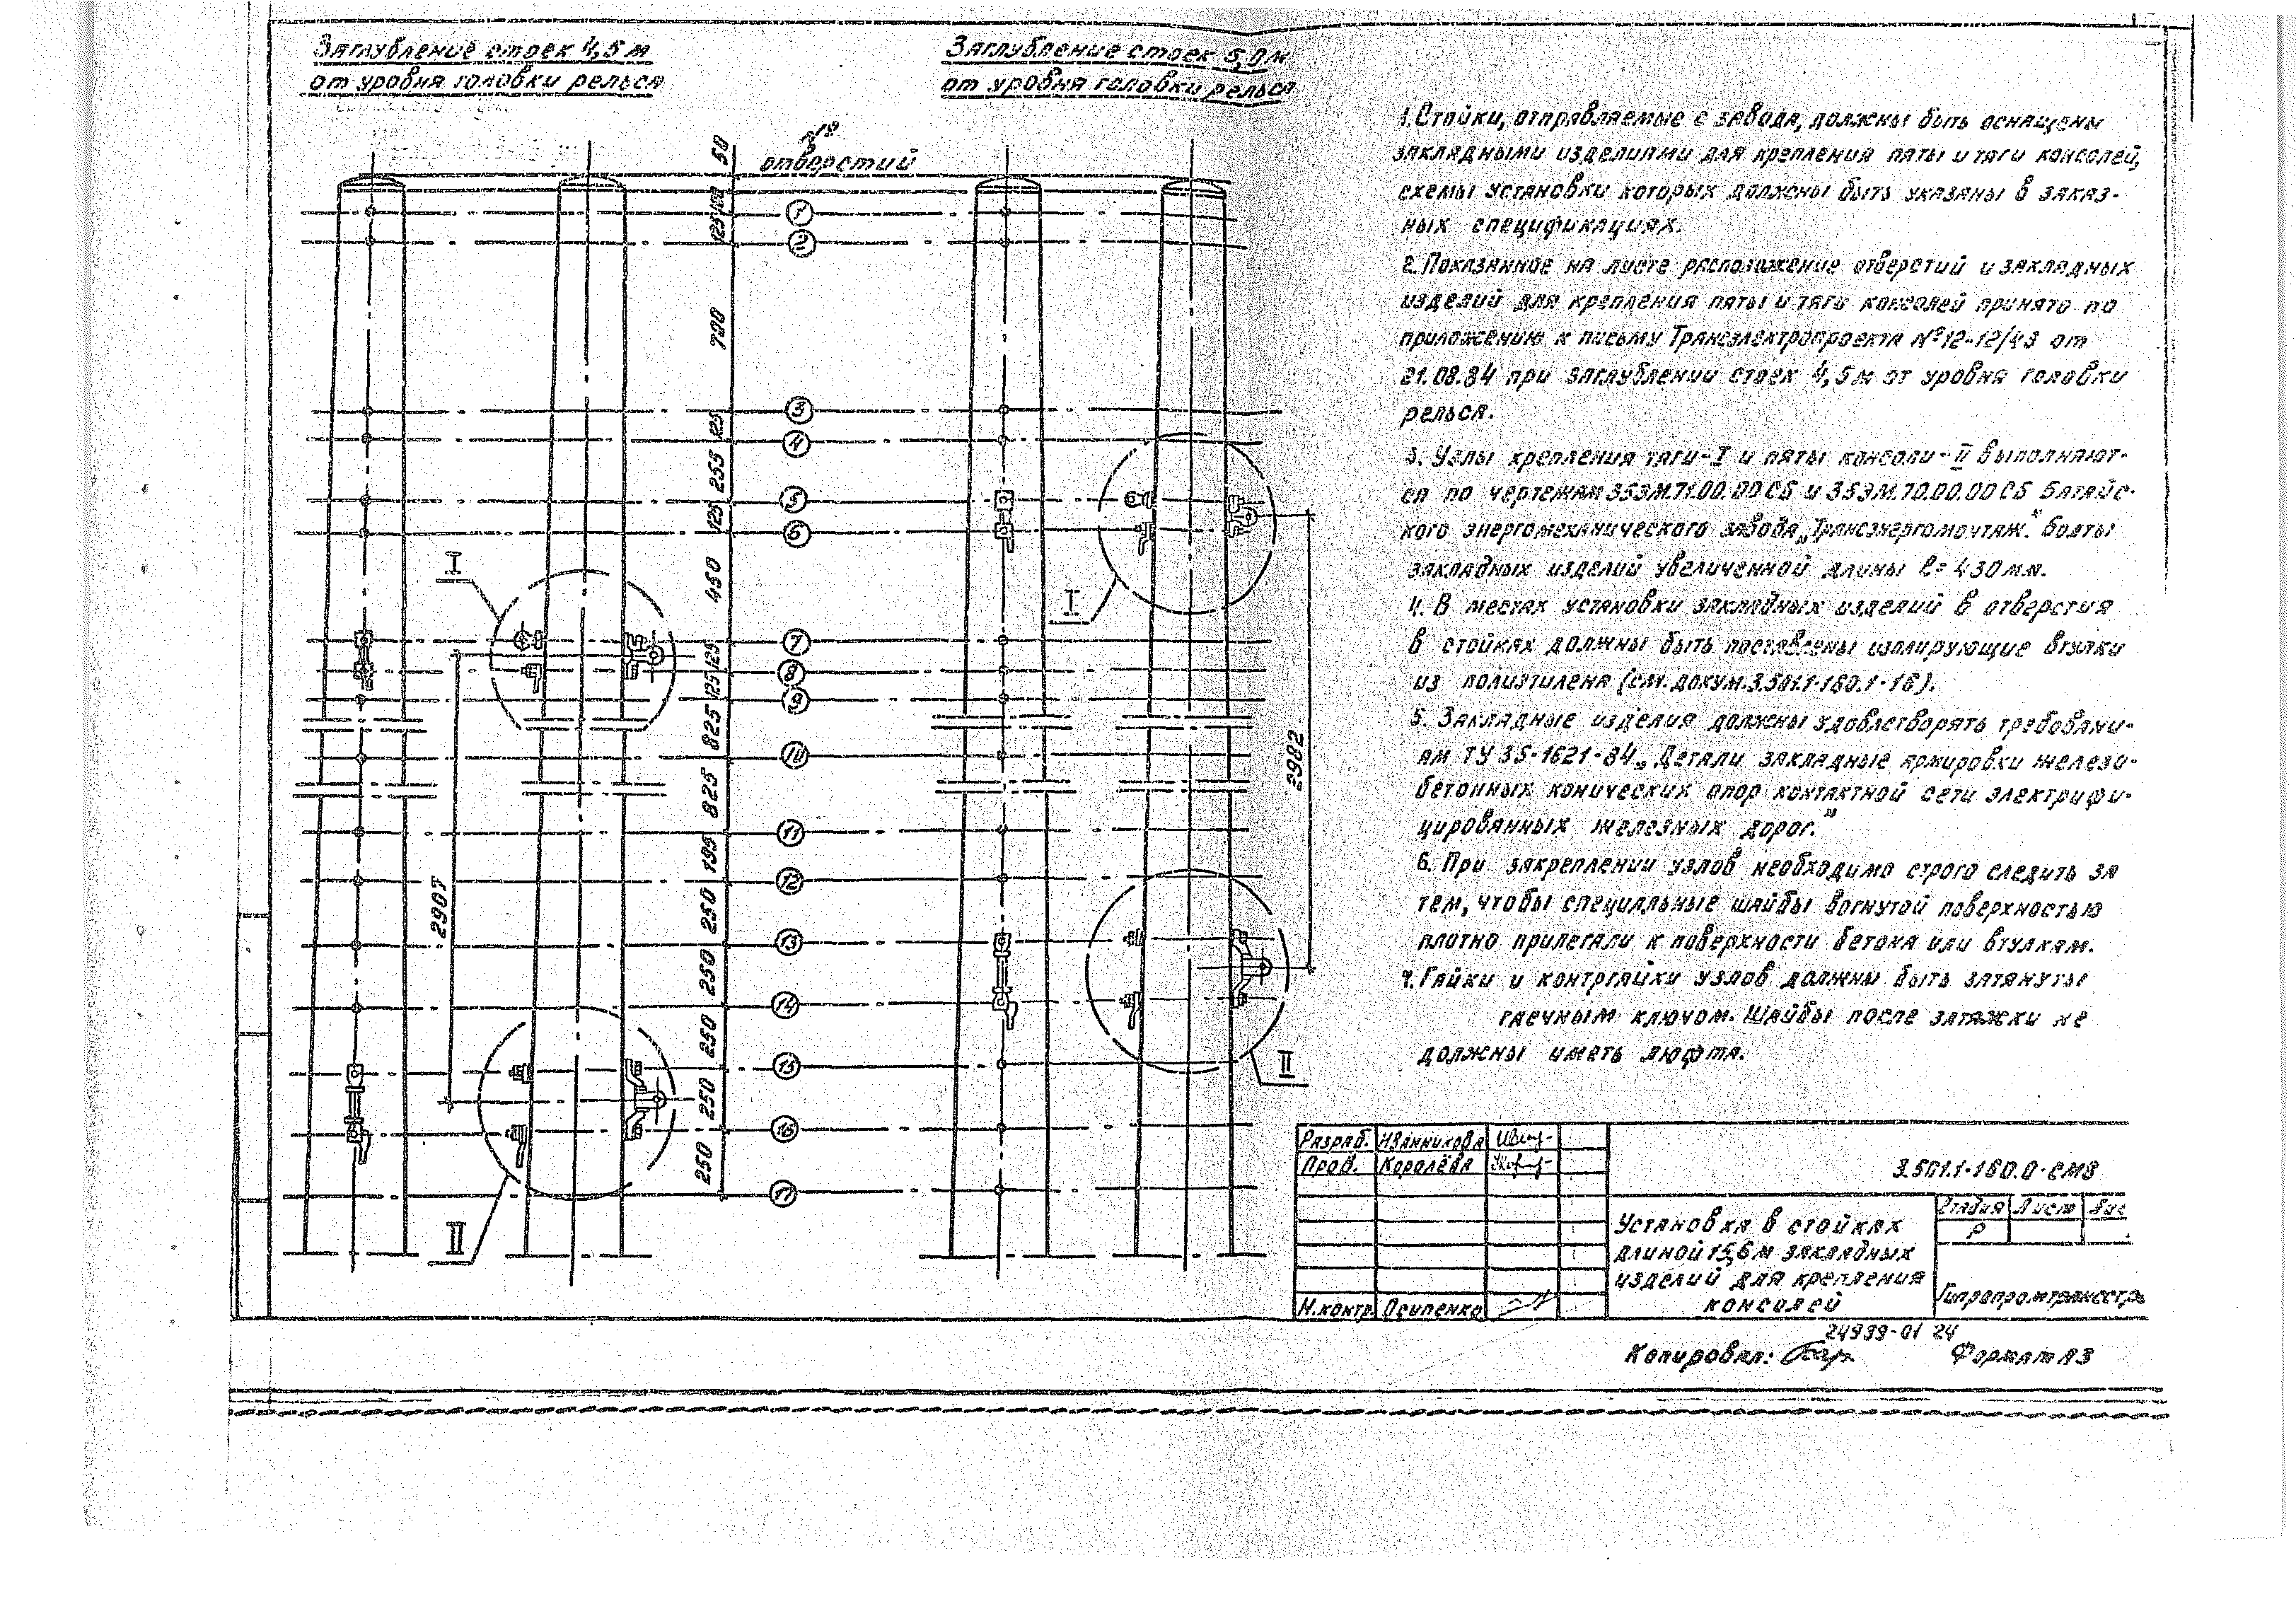 Заглубление стоек 4,5 м
от уровня головки рельса
Заглубление стоек 5,0 м
от уровня головки рельса
отверстий
50
125
700
125
255
125
450
125
125
825
825
195
250
250
250
250
250
1
2
3
4
5
6
7
8
9
10
11
12
13
14
15
16
17
I
II
2907
I
II
2982
1. Стойки, отправляемые с завода, должны быть оснащены
закладными изделиями для крепления пяты и тяги консолей,
схемы установки которых должны быть указаны в заказ-
ных спецификациях.
2. Показанное на листе расположение отверстий и закладных
изделий для крепления пяты и тяги консолей принято по
приложению к письму Трансэлектропроекта №12-12/43 от
21.08.84 при заглублении стоек 4,5 м от уровня головки
рельса.
3. Узлы крепления тяги-I и пяты консоли-II выполняют-
ся по чертежам 353М.71.00.00СБ и 353М.70.00.00СБ Батайс-
кого энергомеханического завода „Трансэнергомонтаж." Болты
закладных изделий увеличенной длины ℓ= 430 мм.
4. В местах установки закладных изделий в отверстия
в стойках должны быть поставлены изолирующие втулки
из полиэтилена (см. докум. 3.501.1-160.1-16).
5. Закладные изделия должны удовлетворять требовани-
ям ТУ 35-1621-84 „Детали закладные армировки железо-
бетонных конических опор контактной сети электрифи-
цированных железных дорог."
6. При закреплении узлов необходимо строго следить за
тем, чтобы специальные шайбы вогнутой поверхностью
плотно прилегали к поверхности бетона или втулкам.
7. Гайки и контргайки узлов должны быть затянуты
гаечным ключом. Шайбы после затяжки не
должны иметь люфта.
Разраб. Иванникова
Пров. Королёва
Н.контр. Осипенко
3.501.1-160.0-СМ8
Установка в стойках
длиной 15,6 м закладных
изделий для крепления
консолей
Стадия Лист Лис
Р
Гипропромтрансстр
24939-01 24
Копировал:
Формат А3